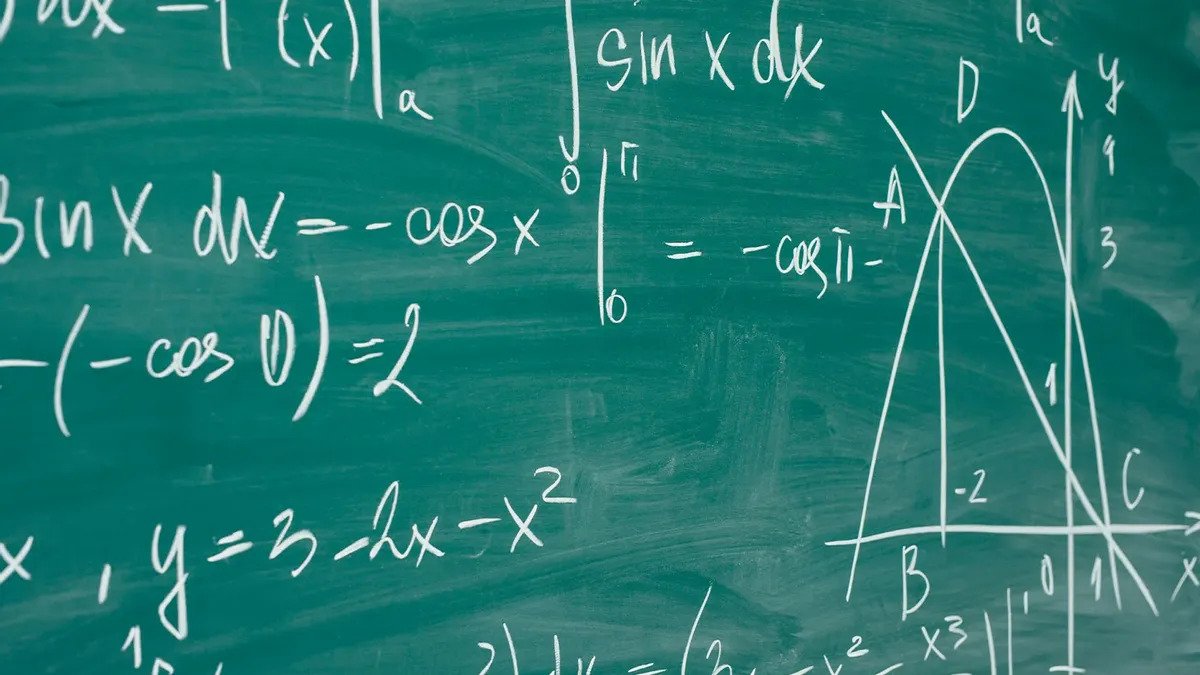 dx - F(x)|a
∫0 sin x dx
|a
sin x dx = -cos x |π0 = -cos π -
-(-cos 0) = 2
x, y = 3 - 2x - x²
1
dx = (3x - x² - x³
D
y
4
A
3
1
-2
C
B
0
1
x